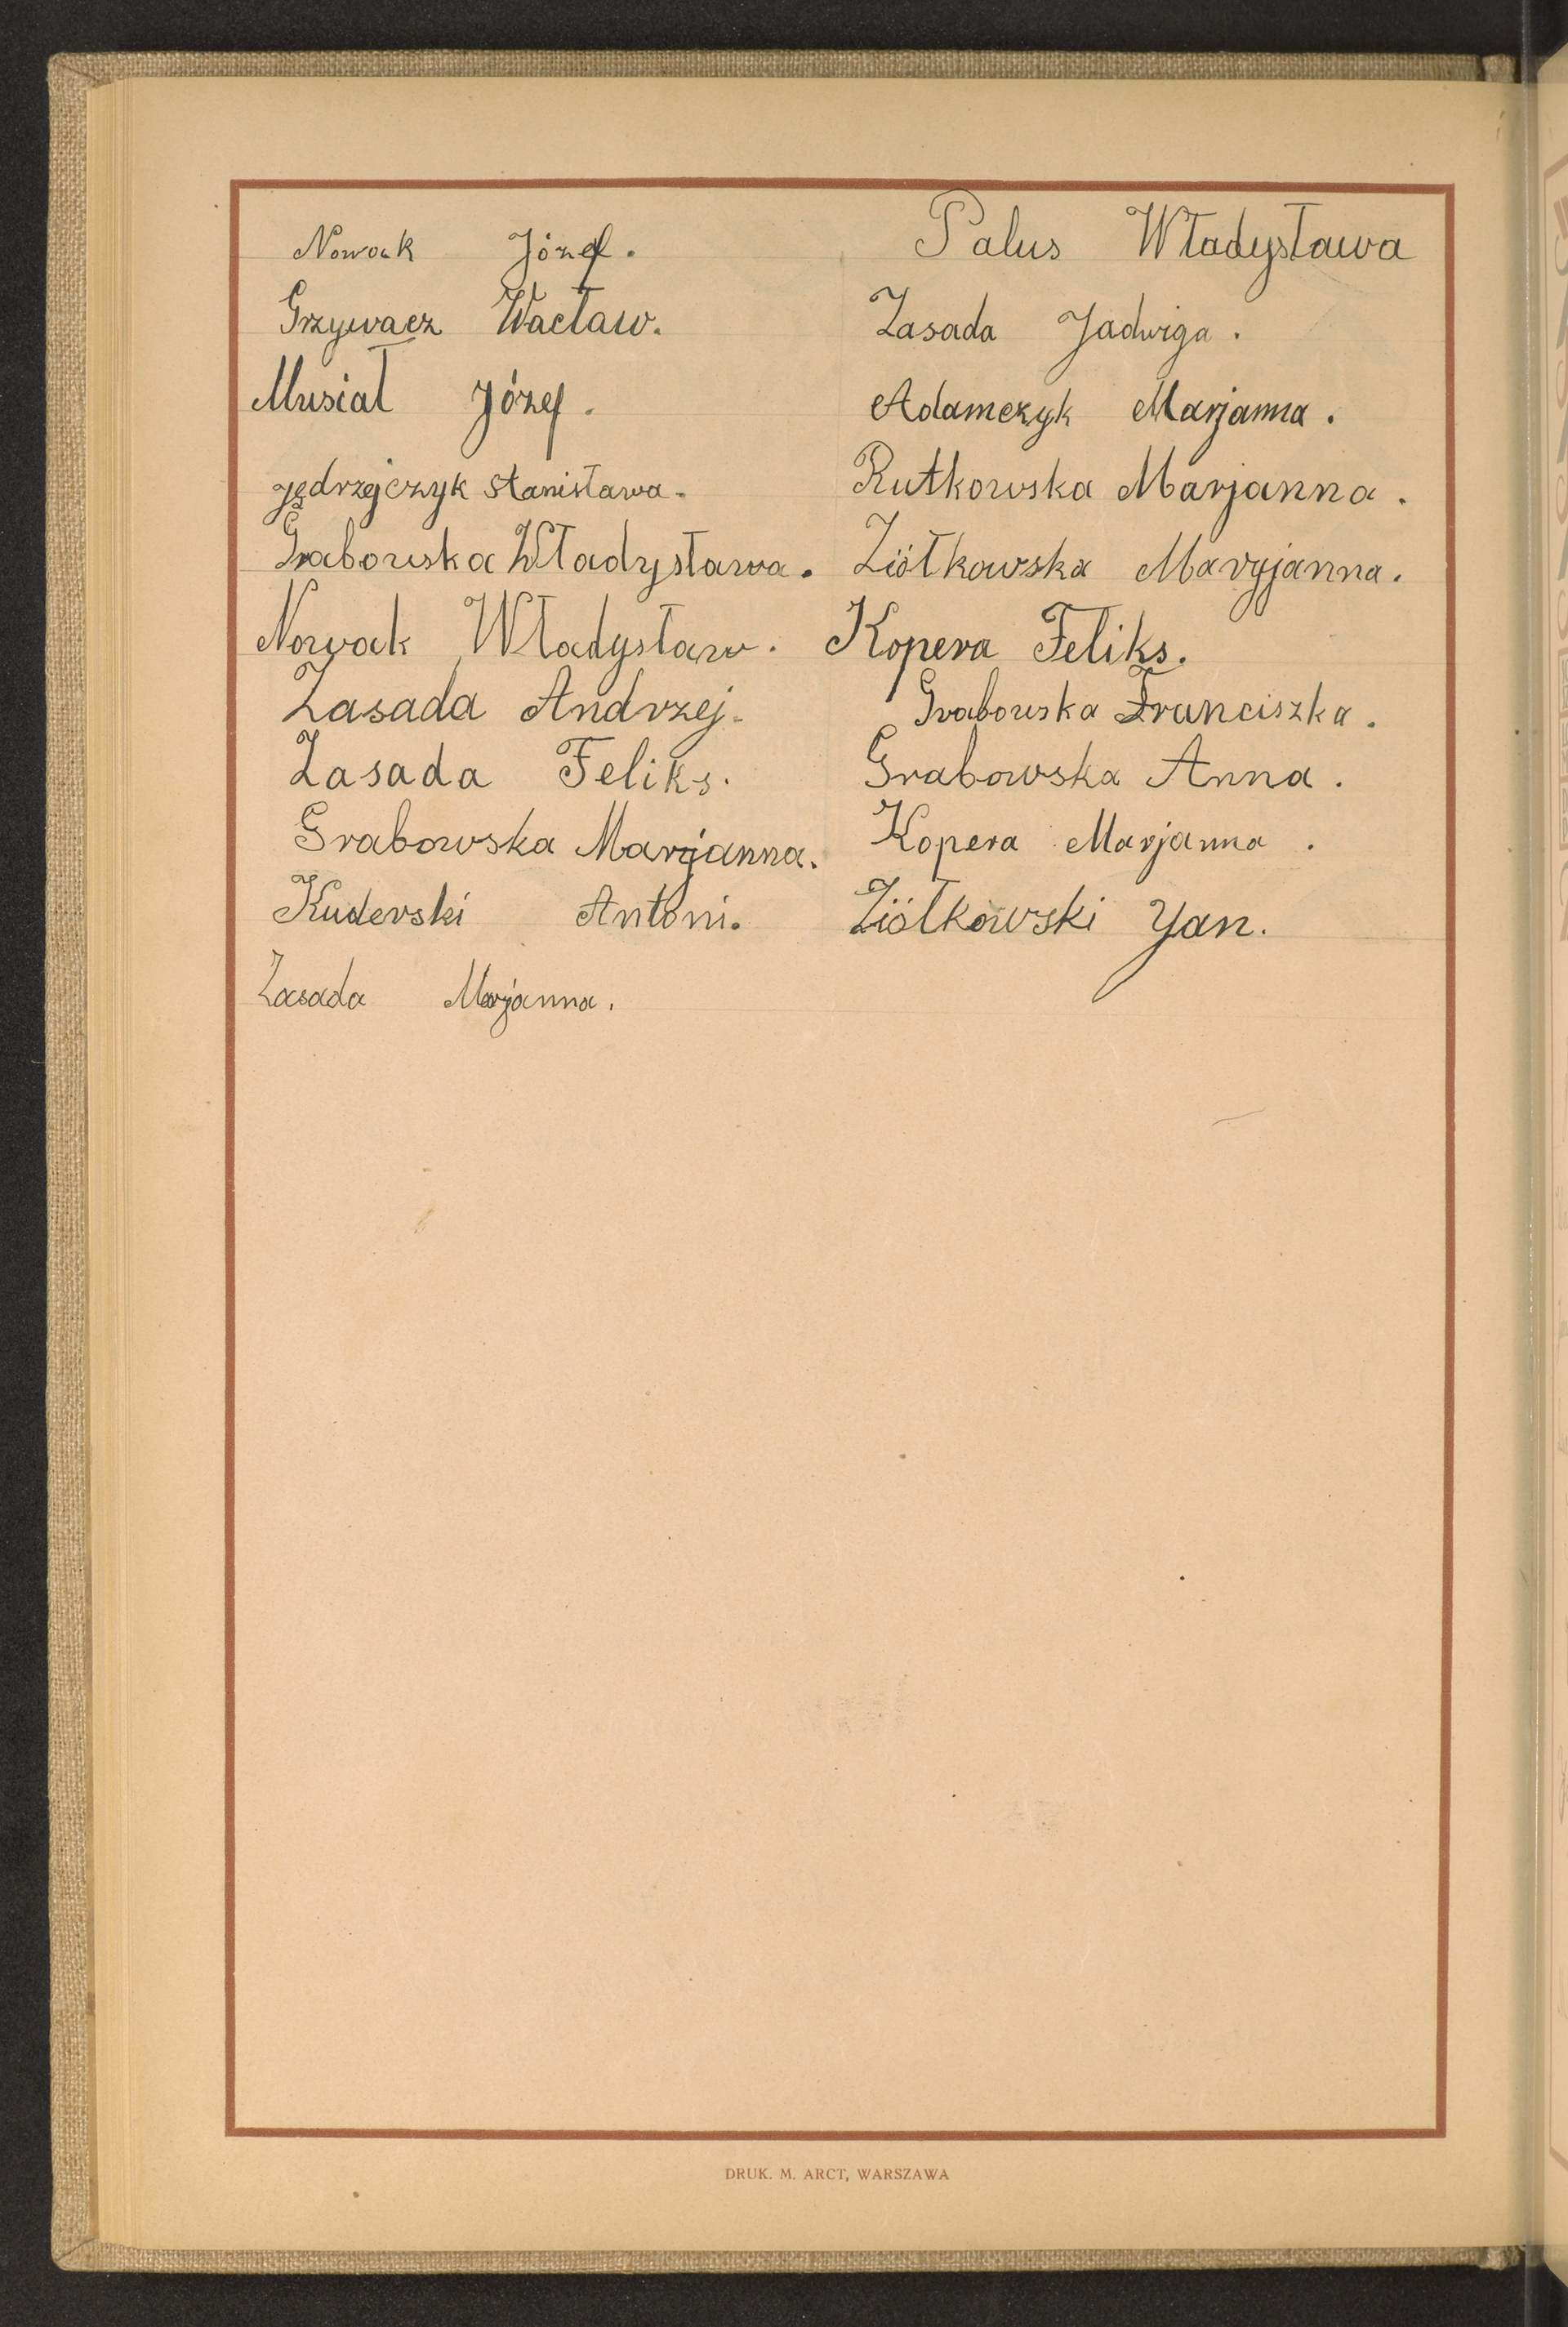 Nowak Józef.
Grzywacz Wacław.
Musiał Józef.
Jędrzejczyk Stanisława.
Grabowska Władysława.
Nowak Władysław.
Zasada Andrzej.
Zasada Feliks.
Grabowska Marjanna.
Kuderski Antoni.
Zasada Marjanna.
Palus Władysława
Zasada Jadwiga.
Adamczyk Marjanna.
Rutkowska Marjanna.
Ziółkowska Maryjanna.
Kopera Feliks.
Grabowska Franciszka.
Grabowska Anna.
Kopera Marjanna.
Ziółkowski Jan.
DRUK. M. ARCT, WARSZAWA